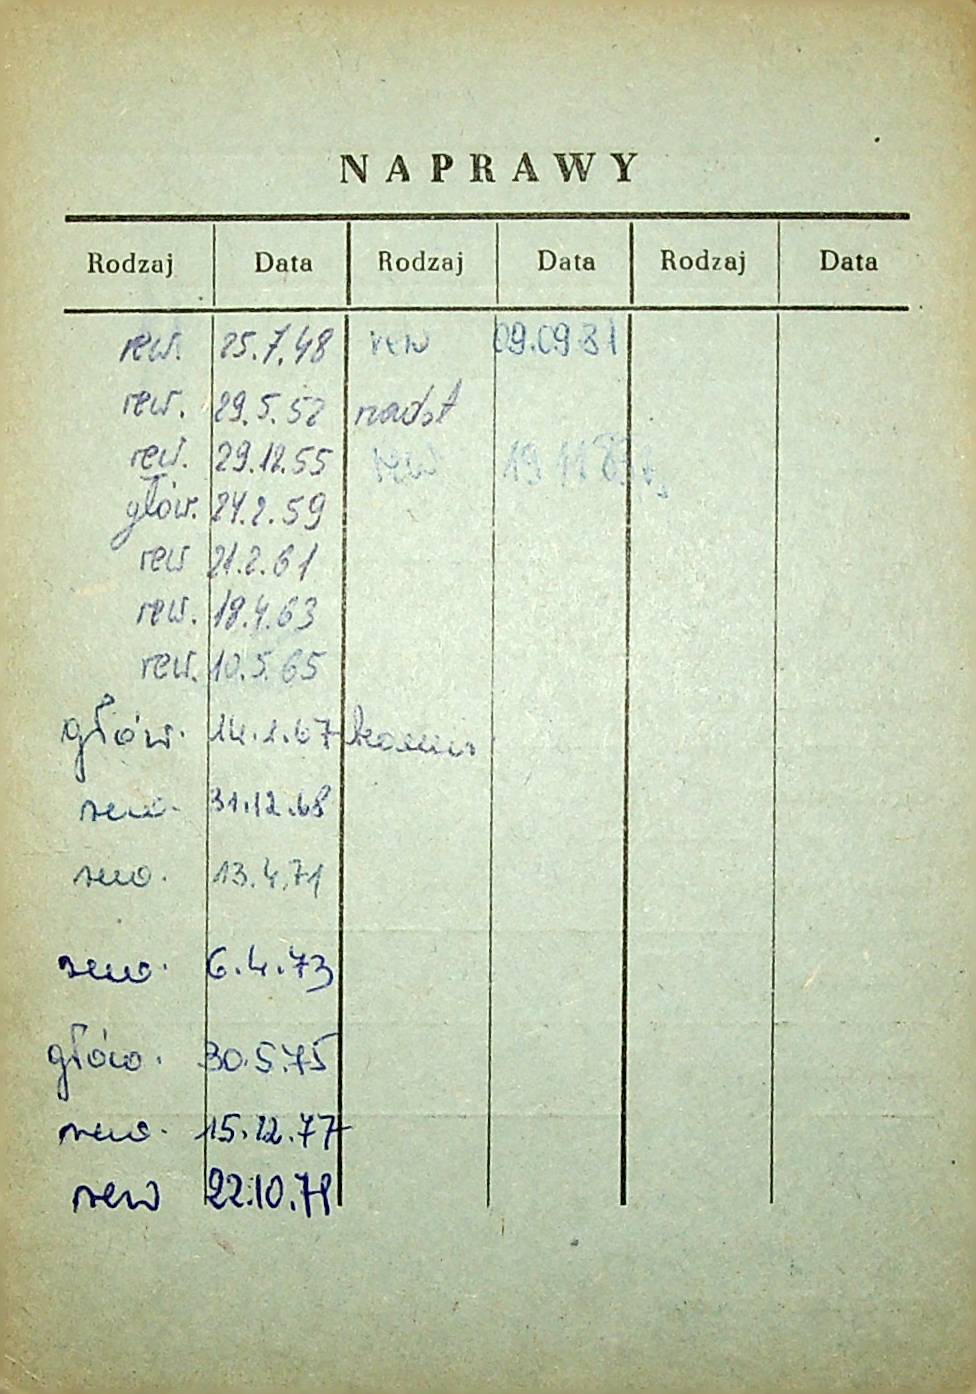 NAPRAWY
Rodzaj Data Rodzaj Data Rodzaj Data
rew. 25.7.48 rew 09.09.81
rew. 29.5.52
rew. 29.12.55 rew 19 11
głów. 24.2.59
rew 21.2.61
rew. 18.4.63
rew. 10.5.65
głów. 14.1.67
rew. 31.12.68
rew. 13.4.71
rew. 6.4.73
głów. 30.5.75
rew. 15.12.77
rew 22.10.79